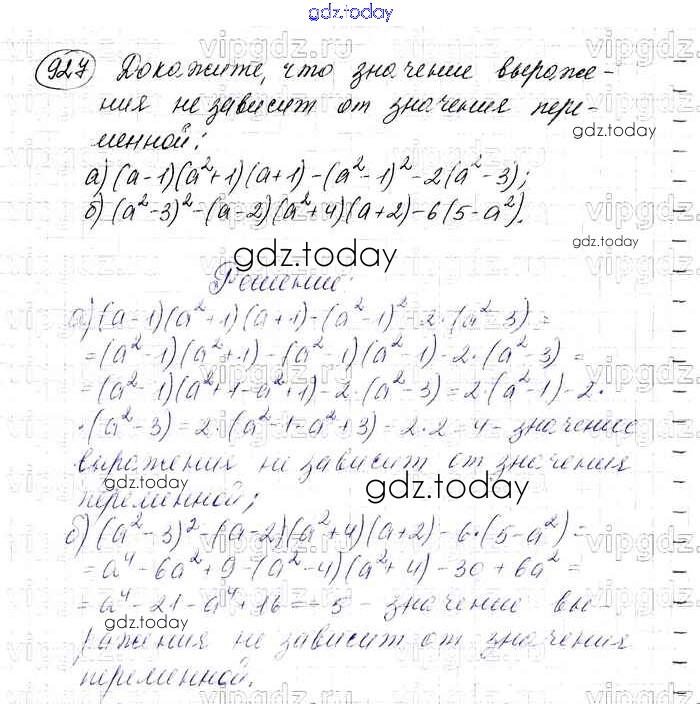 gdz.today
927 Докажите, что значение выраже-
ния не зависит от значения пере-
gdz.today
менной:
а) (a-1)(a²+1)(a+1)-(a²-1)²-2(a²-3);
б) (a²-3)²-(a-2)(a²+4)(a+2)-6(5-a²).
gdz.today
gdz.today
Решение:
а) (a-1)(a²+1)(a+1)-(a²-1)²-2·(a²-3)=
=(a²-1)(a²+1)-(a²-1)(a²-1)-2·(a²-3)=
=(a²-1)(a²+1-a²+1)-2·(a²-3)=2·(a²-1)-2·
·(a²-3)=2·(a²-1-a²+3)=2·2=4- значение
выражения не зависит от значения
gdz.today
gdz.today
переменной;
б) (a²-3)²-(a-2)(a²+4)(a+2)-6·(5-a²)=
=a⁴-6a²+9-(a²-4)(a²+4)-30+6a²=
=a⁴-21-a⁴+16=-5 - значение вы-
ражения не зависит от значения
gdz.today
gdz.today
переменной.